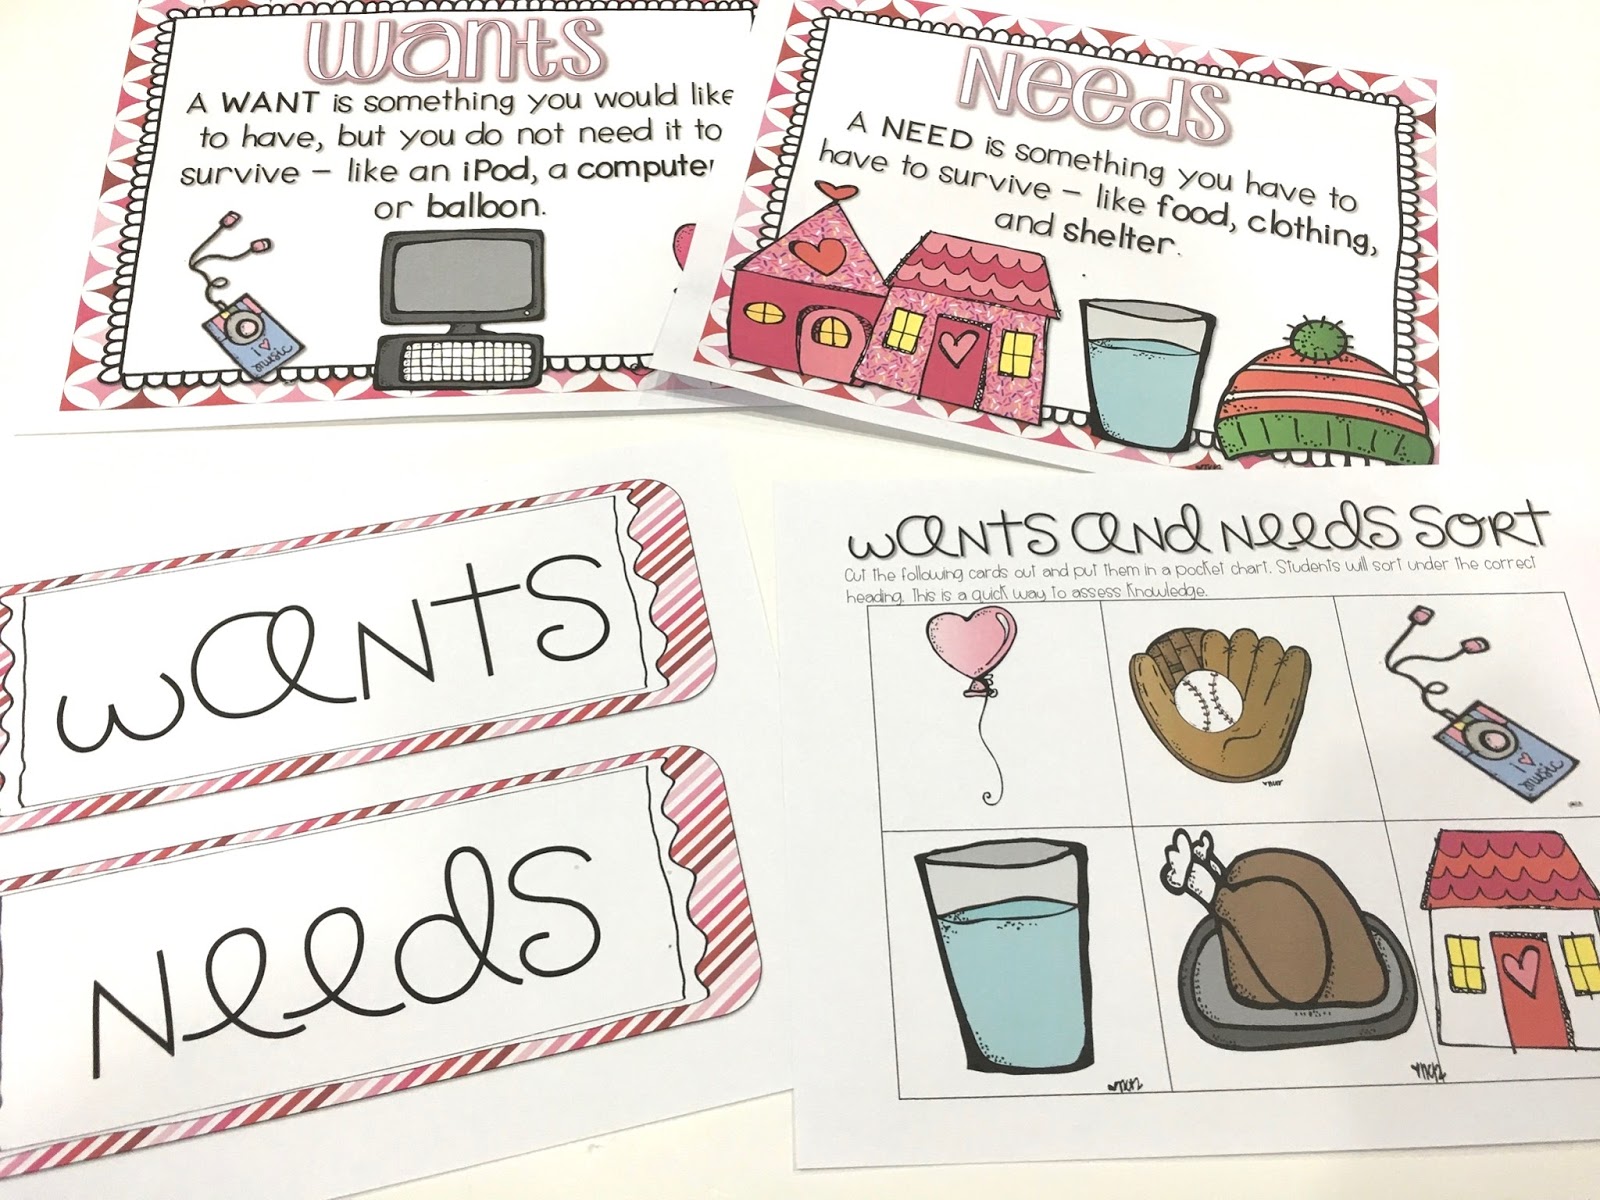 Wants
A WANT is something you would like
to have, but you do not need it to
survive – like an iPod, a computer
or balloon.
i ♥
music
Needs
A NEED is something you have to
have to survive – like food, clothing,
and shelter.
wants
Needs
wants and Needs sort
Cut the following cards out and put them in a pocket chart. Students will sort under the correct
heading. This is a quick way to assess knowledge.
i ♥
music